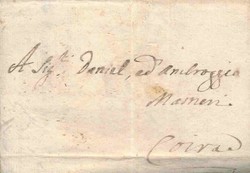 A Sig.ri Daniel, ed' Ambroggio
Masneri
Coira